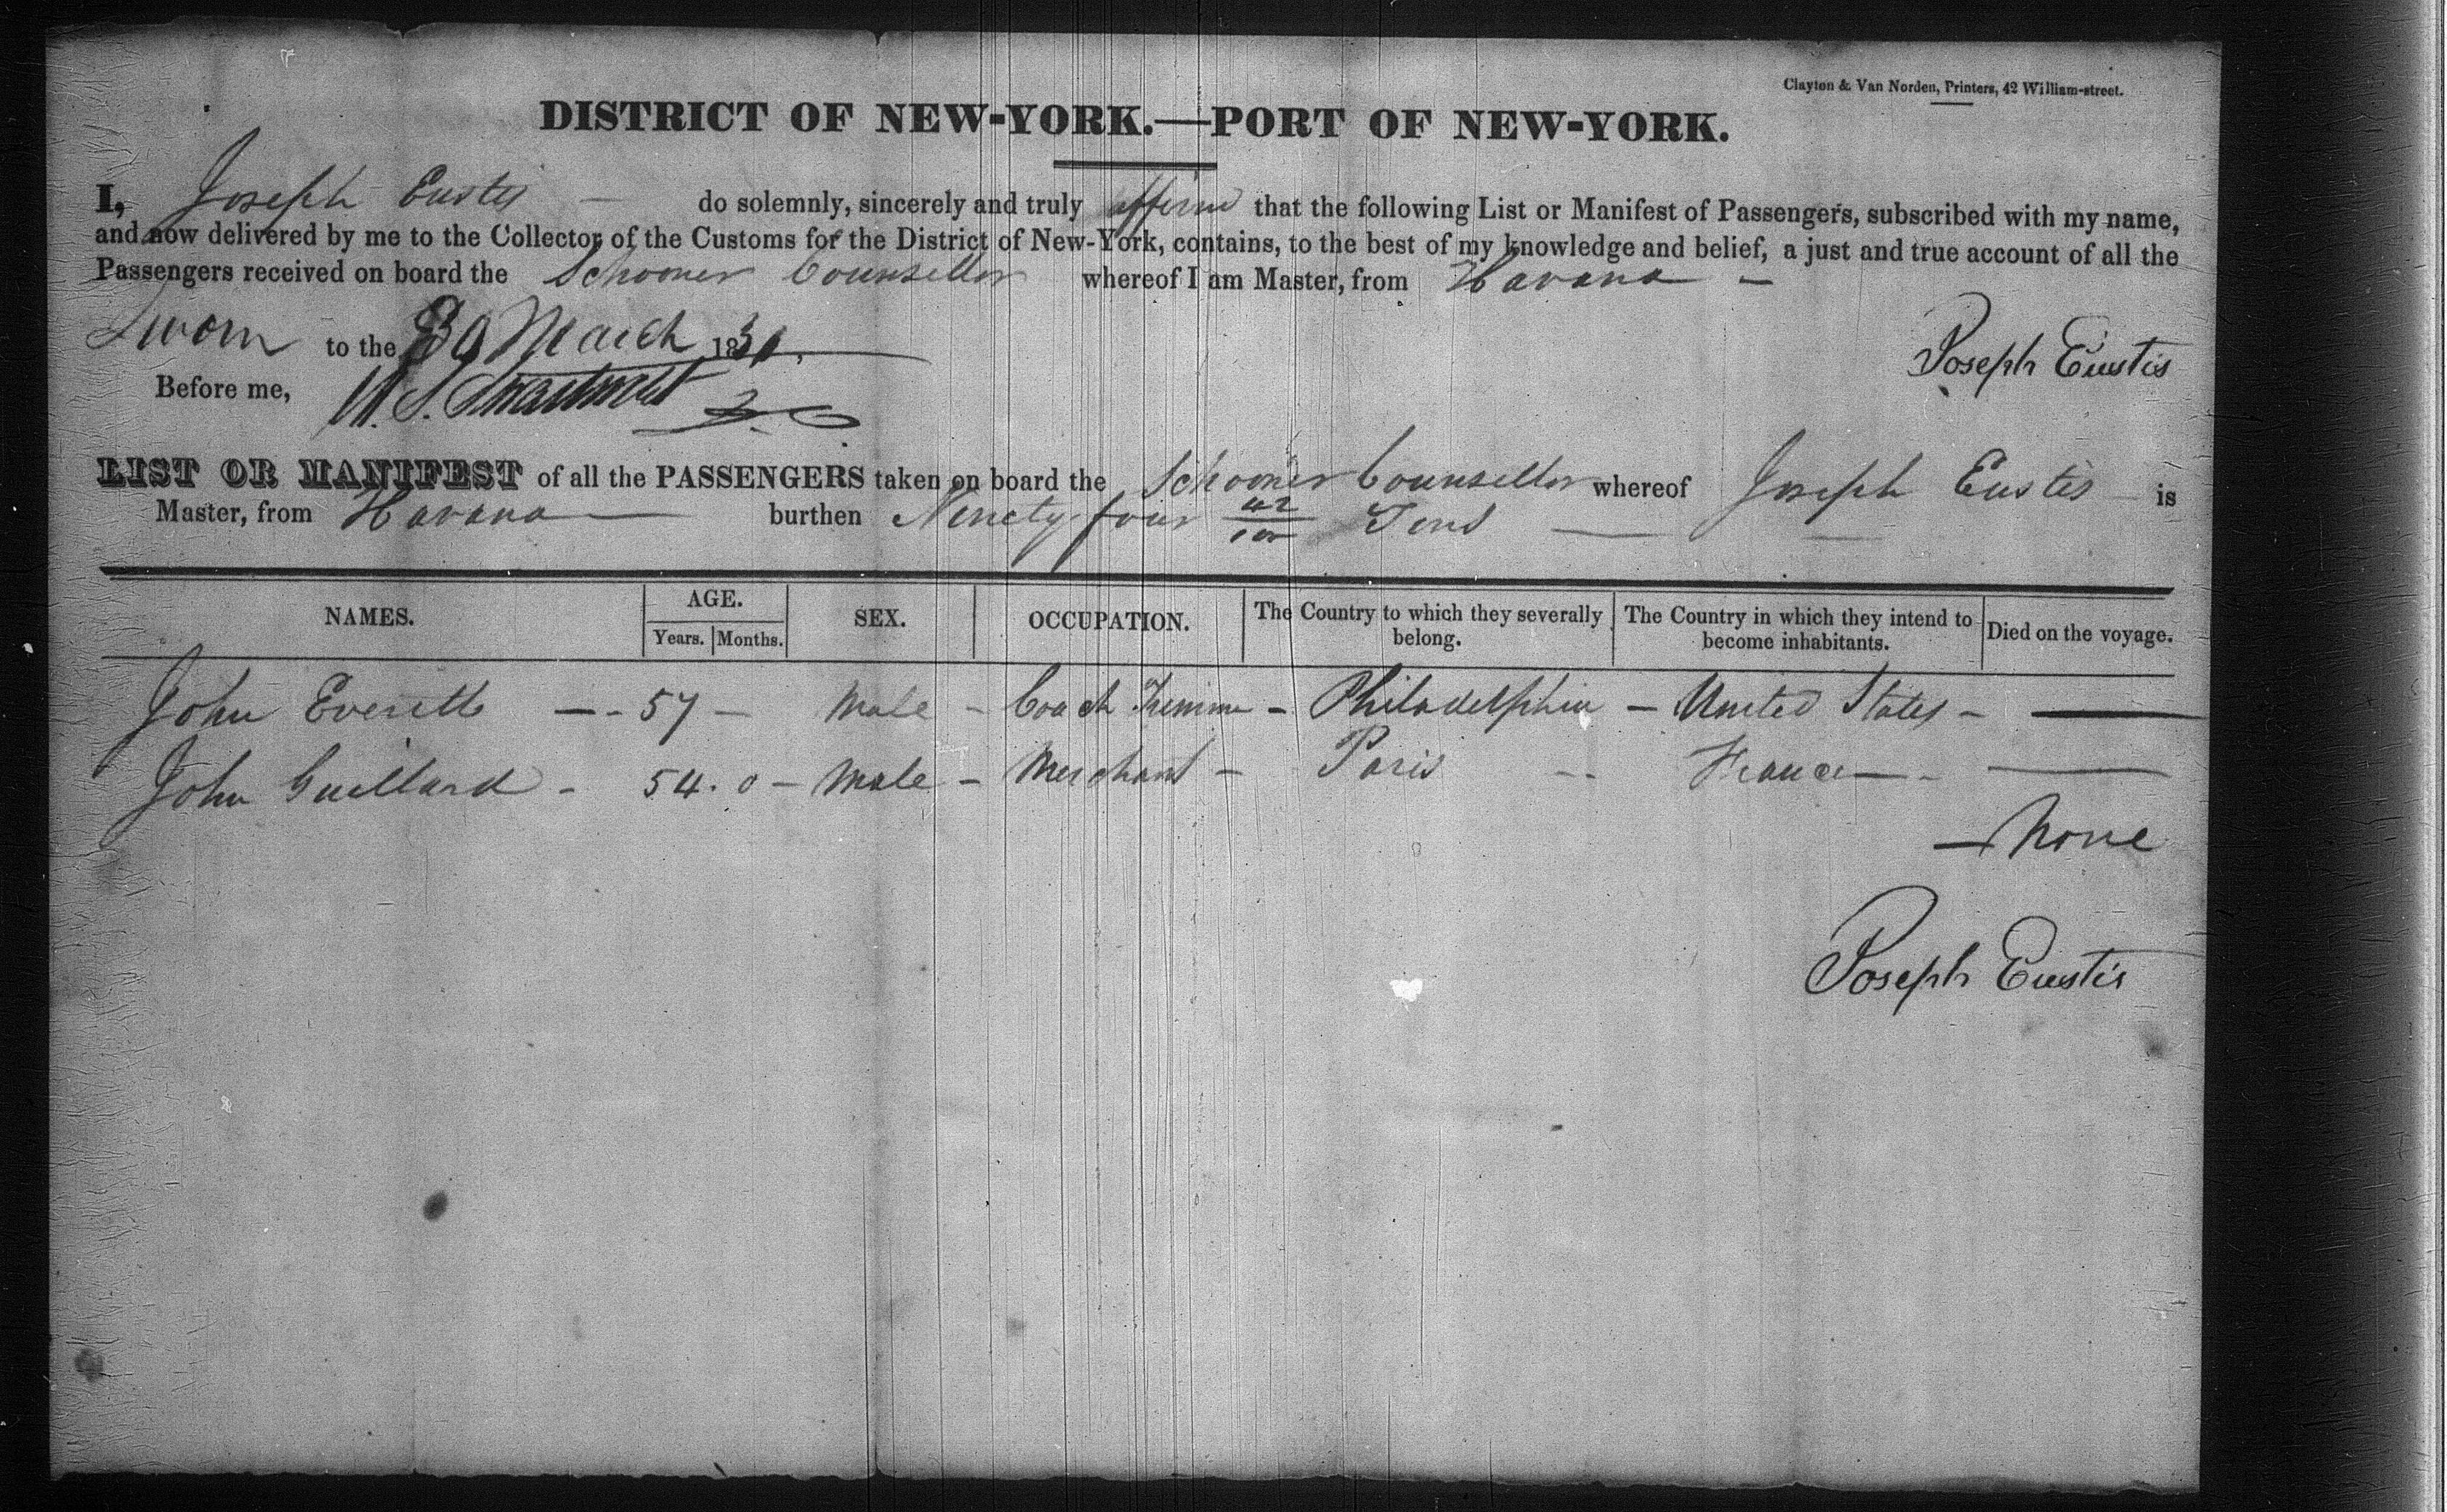 Clayton & Van Norden, Printers, 42 William-street.
DISTRICT OF NEW-YORK.—PORT OF NEW-YORK.
I, Joseph Eustis — do solemnly, sincerely and truly affirm that the following List or Manifest of Passengers, subscribed with my name,
and now delivered by me to the Collector of the Customs for the District of New-York, contains, to the best of my knowledge and belief, a just and true account of all the
Passengers received on board the Schooner Counsellor whereof I am Master, from Havana —
Sworn to the 30 March 1831,
Joseph Eustis
Before me,
LIST OR MANIFEST of all the PASSENGERS taken on board the Schooner Counsellor whereof Joseph Eustis is
Master, from Havana — burthen Ninety four 42/100 Tons —
NAMES. AGE. Years. Months. SEX. OCCUPATION. The Country to which they severally belong. The Country in which they intend to become inhabitants. Died on the voyage.
John Everett — - 57 — Male - Coach Trimmer - Philadelphia - United States - —
John Guillard - 54. 0 - Male - Merchant - Paris -- France — - —
— None
Joseph Eustis